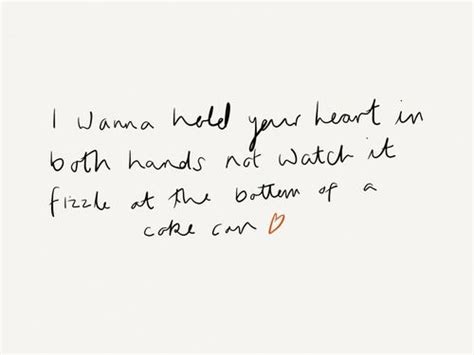 I wanna hold your heart in
both hands not watch it
fizzle at the bottom of a
coke can